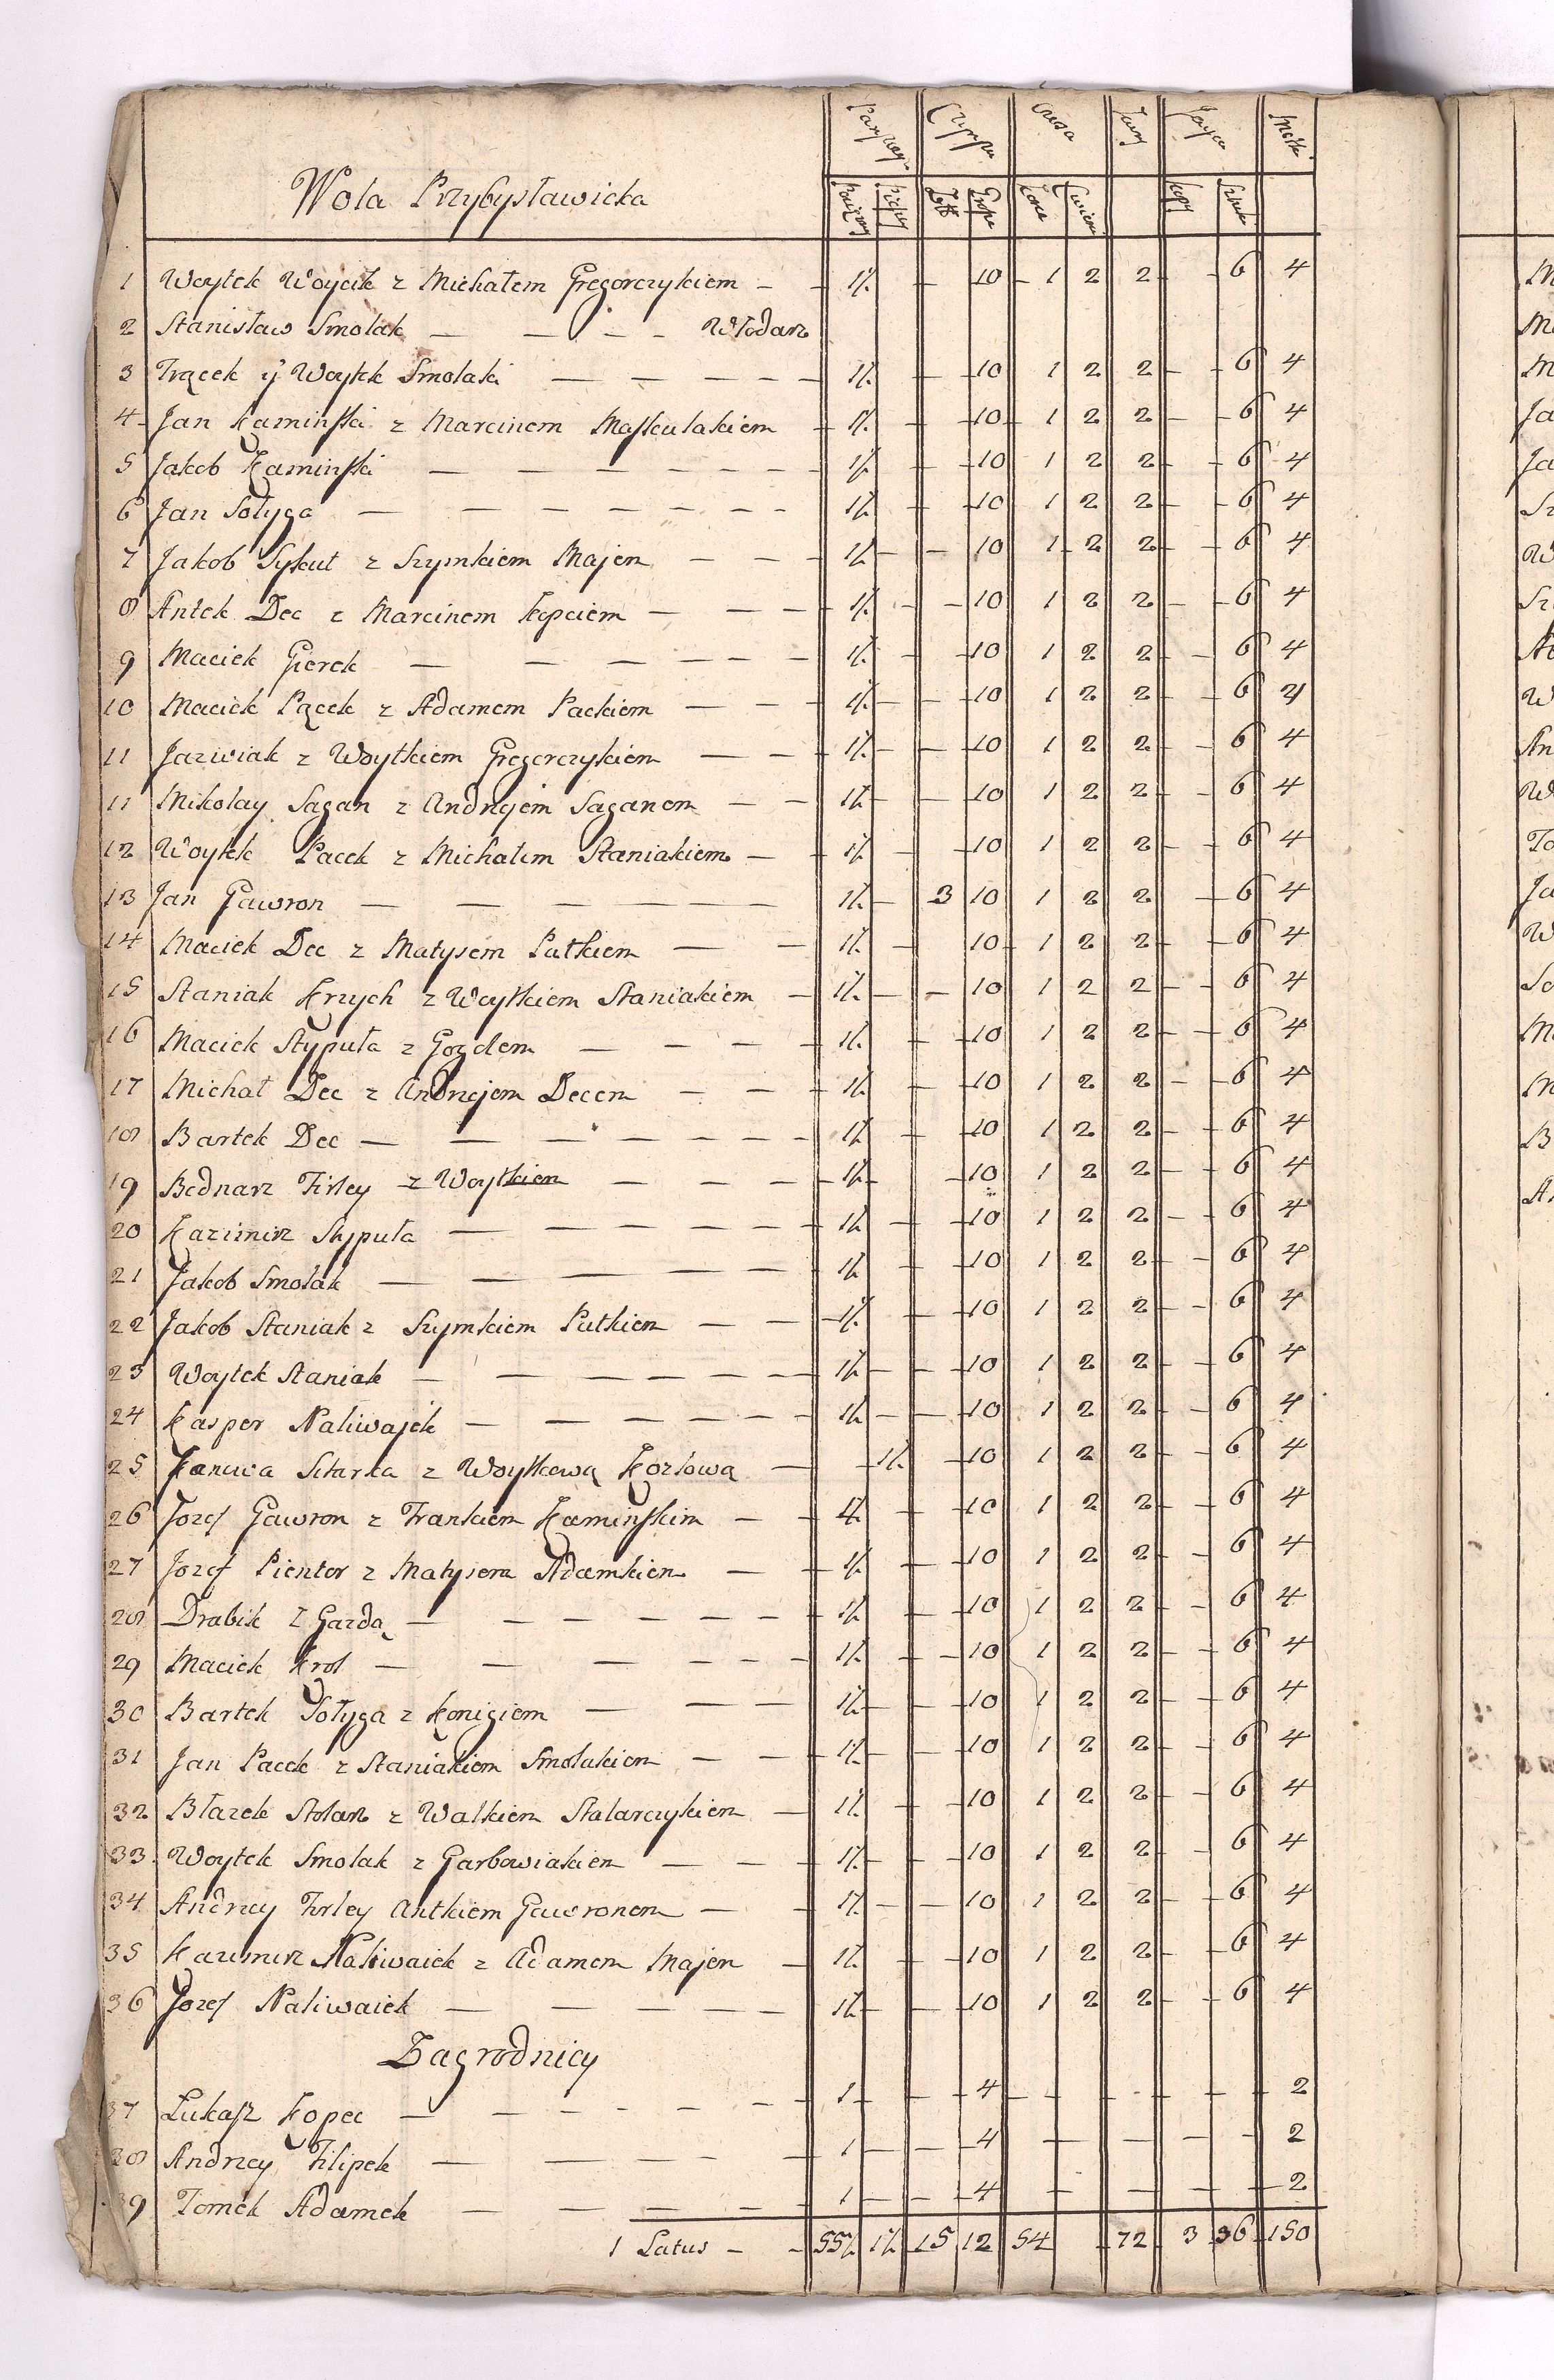 Wola Przybysławicka
1 Woytek Woycik z Michałem Gregorczykiem 1/. 10 1 2 2 6 4
2 Stanisław Smolak Włodarz
3 Frącek ÿ Woytek Smolaki 1/. 10 1 2 2 6 4
4 Jan Kaminſki z Marcinem Maſkulakiem 1/. 10 1 2 2 6 4
5 Jakob Kaminſki 1/. 10 1 2 2 6 4
6 Jan Sołyga 1/. 10 1 2 2 6 4
7 Jakob Sykut z Szymkiem Majem 1/. 10 1 2 2 6 4
8 Antek Dec z Marcinem Kopciem 1/. 10 1 2 2 6 4
9 Maciek Gierek 1/. 10 1 2 2 6 4
10 Maciek Pącek z Adamem Packiem 1/. 10 1 2 2 6 4
11 Jaziviak z Woytkiem Gregorczykiem 1/. 10 1 2 2 6 4
11 Mikołay Sagan z Andrzejem Saganem 1/. 10 1 2 2 6 4
12 Woytek Pacek z Michałem Staniakiem 1/. 10 1 2 2 6 4
13 Jan Gawron 1/. 3 10 1 2 2 6 4
14 Maciek Dec z Matysem Putkiem 1/. 10 1 2 2 6 4
15 Staniak Krzych z Woytkiem Staniakiem 1/. 10 1 2 2 6 4
16 Maciek Stypuła z Gozdem 1/. 10 1 2 2 6 4
17 Michał Dec z Andrzejem Decem 1/. 10 1 2 2 6 4
18 Bartek Dec 1/. 10 1 2 2 6 4
19 Bednarz Firley z Woytkiem 1/. 10 1 2 2 6 4
20 Kazimirz Stypuła 1/. 10 1 2 2 6 4
21 Jakob Smolak 1/. 10 1 2 2 6 4
22 Jakob Staniak z Szymkiem Putkiem 1/. 10 1 2 2 6 4
23 Woytek Staniak 1/. 10 1 2 2 6 4
24 Kasper Naliwajek 1/. 10 1 2 2 6 4
25 z Woytkową Kozłową 1/. 10 1 2 2 6 4
26 Jozef Gawron z Frankiem Kaminſkim 1/. 10 1 2 2 6 4
27 Jozef Pientor z Matysem Adamkiem 1/. 10 1 2 2 6 4
28 Drabik z Gazdą 1/. 10 1 2 2 6 4
29 Maciek Krol 1/. 10 1 2 2 6 4
30 Bartek Sołyga z Konigiem 1/. 10 1 2 2 6 4
31 Jan Pacek z Staniakiem Smolakiem 1/. 10 1 2 2 6 4
32 Błazek Stolarz z Walkiem Stalarczykiem 1/. 10 1 2 2 6 4
33 Woytek Smolak z Garbowiakiem 1/. 10 1 2 2 6 4
34 Andrzey Firley Antkiem Gawronem 1/. 10 1 2 2 6 4
35 Kazimirz Naliwaiek z Adamem Majem 1/. 10 1 2 2 6 4
36 Jozef Naliwaiek 1/. 10 1 2 2 6 4
Zagrodnicy
37 Łukaſz Kopec 1 4 2
38 Andrzey Filipek 1 4 2
39 Tomek Adamek 1 4 2
1 Latus 55/. 1/. 15 12 54 72 3 36 150